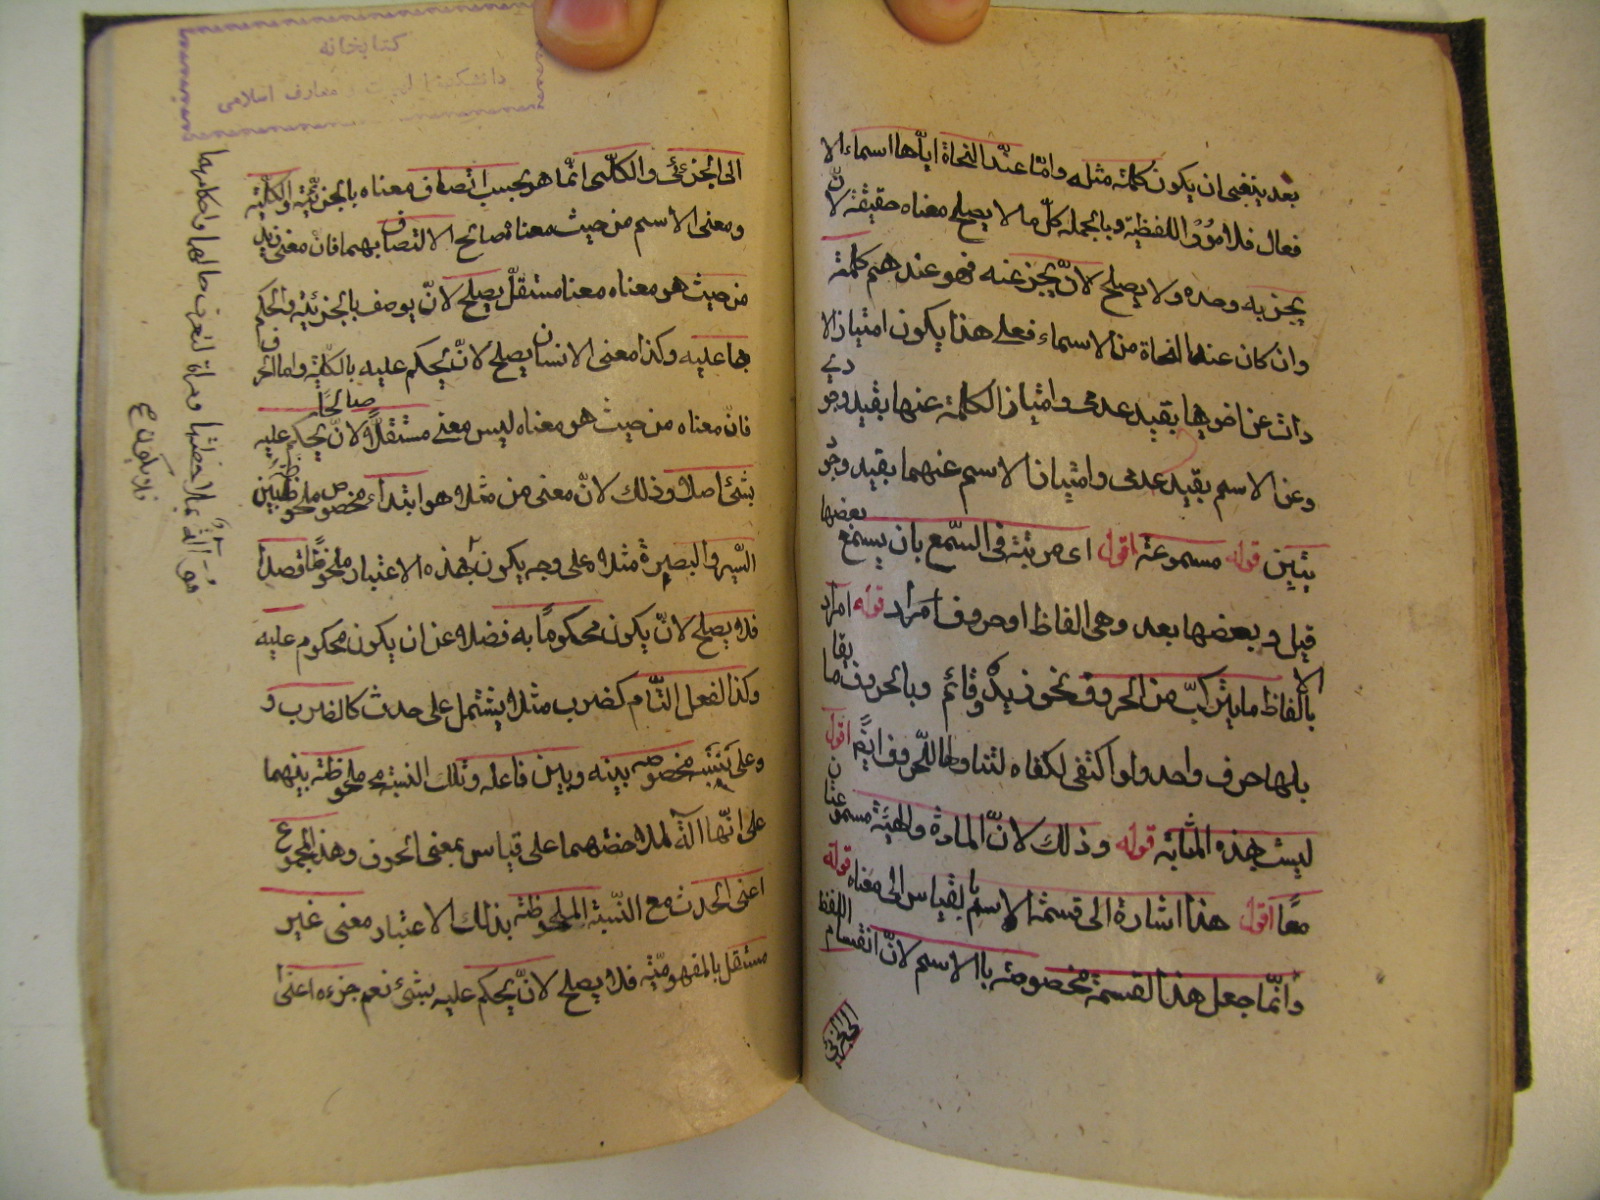 بعد ينبغى ان يكون كلمة مثله وامّا عند النحاة ايلّها اسماء الا
فعال فلامؤر اللفظيّة وبالجمله كلّ ما لا يصلح معناه حقيقة لانّ
يجز به وحده ولا يصلح لانّ يجز عنه فهو عندهم كلمة
وان كان عند النحاة من الاسماء فعلى هذا يكون امتياز الا
دات عن اخويها بقيد عدمى وامتياز الكلمة عنها بقيد وجودى
وعن الاسم بقيد عدمى وامتياز الاسم عنهما بقيد وجو
يتين قوله مسموعة اقول اى مرتبة فى السّمع بان يسمع بعضها
قبل وبعضها بعد وهى الفاظ او حروف امراد قوله امراد
بالالفاظ ما يتركب من الحروف نحو زيد وقائم وبالحروف ما يقا
بلها حرف واحد ولو اكتفى لكفاه لتناولها للحروف ايضًا اقول
ليست بهذه المثابة قوله وذلك لانّ المادة والهيئة مسموعتان
معًا اقول هذا اشارة الى قسمة الاسم بالقياس الى معناه قوله
وانّما جعل هذا القسمة مخصوصة باالاسم لانّ انقسام اللفظ
الى الجزئى والكلّى انّما هو بحسب اتصاف معناه بالجزئيّة والكلّية
ومعنى الاسم من حيث معناه صالح الاتصاف بهما فانّ معنى زيد
من حيث هو معناه معنا مستقلّ يصلح لانّ يوصف بالجزئية والحكم
بها عليه وكذا معنى الانسان يصلح لانّ يحكم عليه بالكلّية واما الحرف
فانّ معناه من حيث هو معناه ليس معنى مستقلًا صالحًا لانّ يحكم عليه
بشئ اصلا وذلك لانّ معنى من مثلا هو ابتداء مخصوص ملحوظ بين
السّير والبصرة مثلا على وجه يكون بهذه الاعتبار ملحوظًا قصدا
فلا يصلح لانّ يكون محكومًا به فضلا عن ان يكون محكوم عليه
وكذا الفعل التّام كضرب مثلا يشتمل على حدث كالضرب و
وعلى نسبة مخصوصه بينه وبين فاعله وتلك النسبة ملحوظة بينهما
على انّها آلة لملاحضتهما على قياس بمعنى الحرف وهذا المجموع
اعنى الحدث مع النّسبة الملحوظة بذلك الاعتبار معنى غير
مستقل بالمفهوميّة فلا يصلح لانّ يحكم عليه بشئ نعم جزءه اعنى
آلة لملاحظتها ومراة لتعرف حالهما واحكامهما
فلا يكون
كتابخانه
دانشكده الهيات و معارف اسلامى